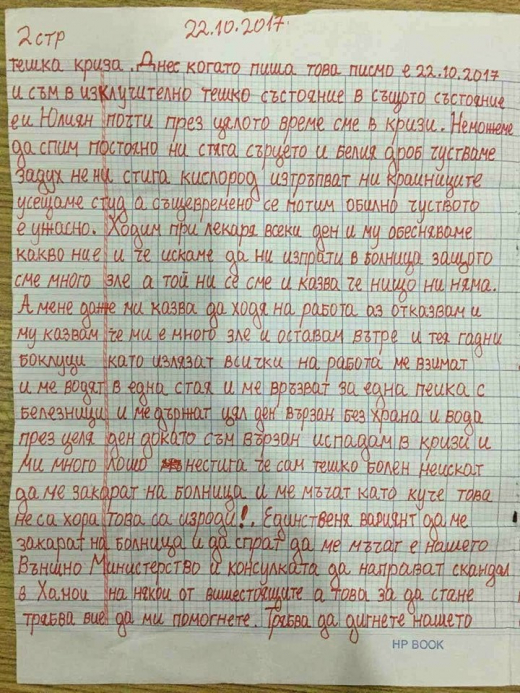 2 стр
22.10.2017
тешка криза. Днес когато пиша това писмо е 22.10.2017
и съм в изклучително тешко състояние в същото състояние
е и Юлиян почти през цялото време сме в кризи. Неможеме
да спим постояно ни стяга сърцето и белия дроб чустваме
задух не ни стига кислород изтръпват ни краиниците
усещаме студ а същевремено се потим обилно чуството
е ужасно. Ходим при лекаря всеки ден и му обесняваме
какво ние и че искаме да ни изпрати в болница защото
сме много зле а той ни се сме и казва че нищо ни няма.
А мене даже ми казва да ходя на работа аз отказвам и
му казвам че ми е много зле и оставам вътре и тея гадни
боклуци като излязат всички на работа ме взимат
и ме водят в една стая и ме връзват за една пеика с
белезници и ме държат цял ден вързан без храна и вода
през целя ден докато съм вързан испадам в кризи и
ми много лошо нестига че сам тешко болен неискат
да ме закарат на болница и ме мъчат като куче това
не са хора това са изроди!. Единственя вариянт да ме
закарат на болница и да спрат да ме мъчат е нашето
Външно Министерство и консулката да направат скандал
в Ханои на някои от вишестоящите а това за да стане
трябва вие да ми помогнете. Трябва да дигнете нашето
HP BOOK